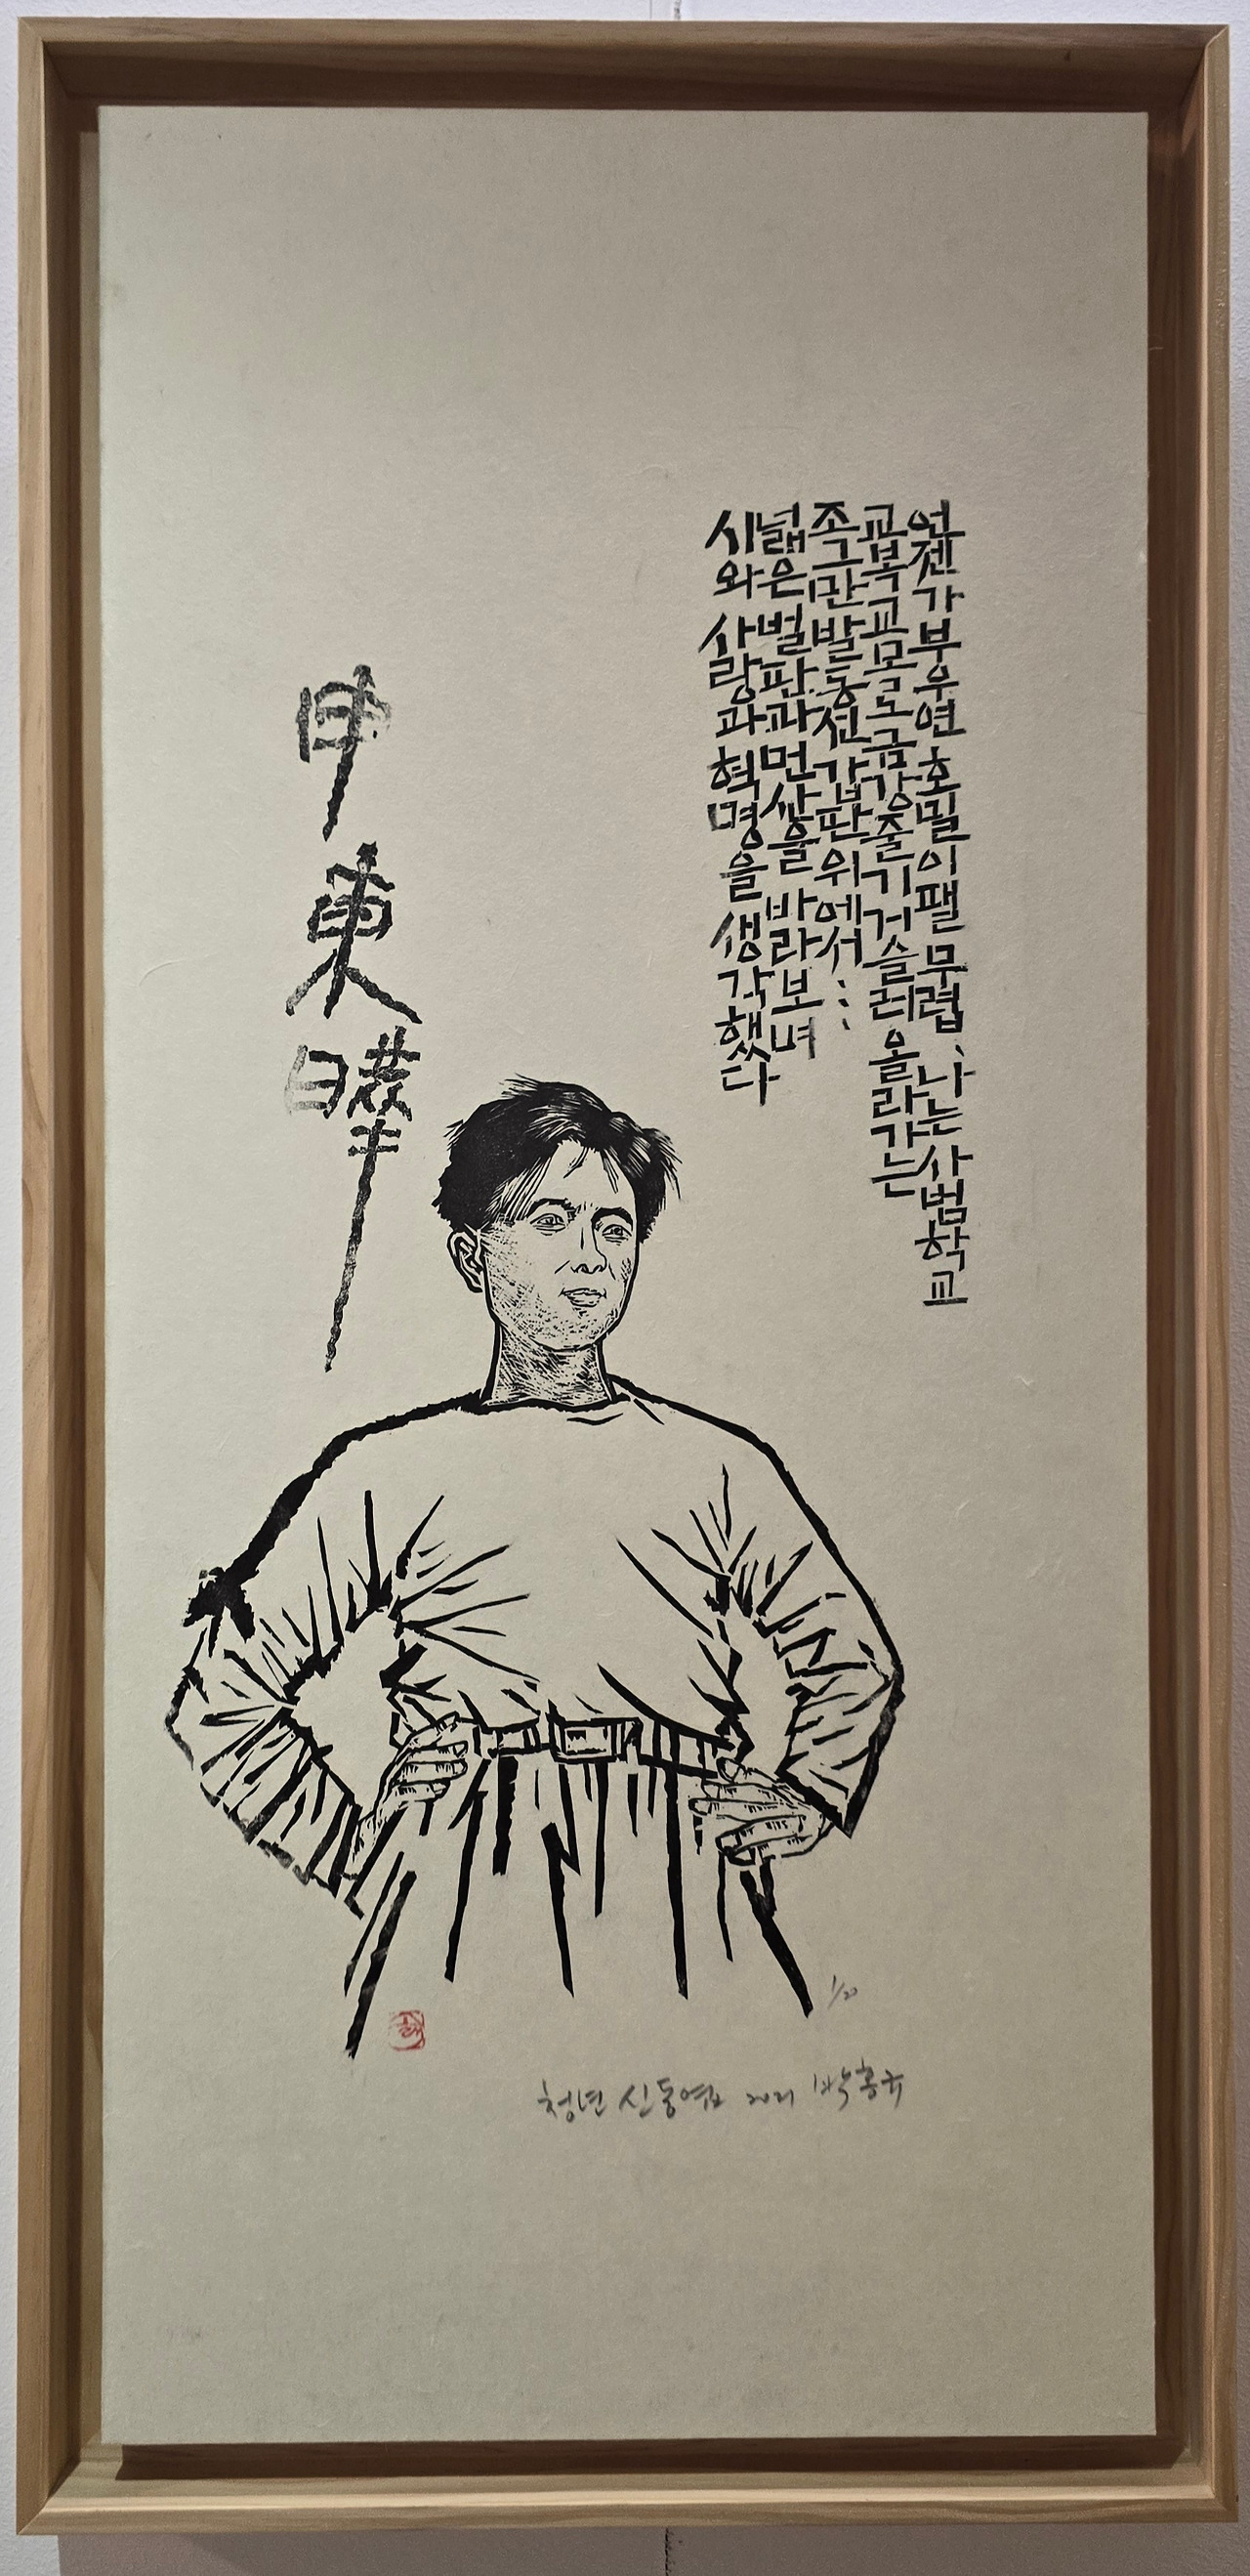 언젠가 부우연 호밀이 팰 무렵, 나는 사범학교
교복 교모로 금강줄기 거슬러 올라가는
족그만 발동선 갑판 위에서...
넓은 벌판과 먼 산을 바라보며
시와 사랑과 혁명을 생각했다
申東曄
1/20
청년 신동엽 2021 박홍규